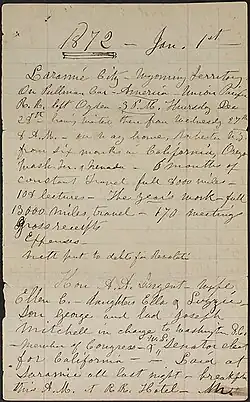 1872 - Jan. 1st -
Laramie City - Wyoming Territory
On Pullman Car - America - Union Pacific
R.R. left Ogden - 5 P.M. Thursday Dec
28th having waited there from Wednesday 27th
8 A.M. - on way home, Rochester N.Y.
from six months in California, Oregon
Wash. Ter. & Nevada - 6 months of
constant travel full 8000 miles -
108 lectures - The year's work - full
13,000 miles travel - 170 meetings
Gross receipts
Expenses -
nett put to debt for Revolution
Hon. A. A. Sargent wife
Ellen C. - daughters Ella & Lizzie
Son George and lad Joseph
Mitchell in charge to Washington D.C.
- member of Congress & U.S. Senator elect
for California - Laid at
Laramie all last night - breakfast
this A.M. at R.R. Hotel - Mr.